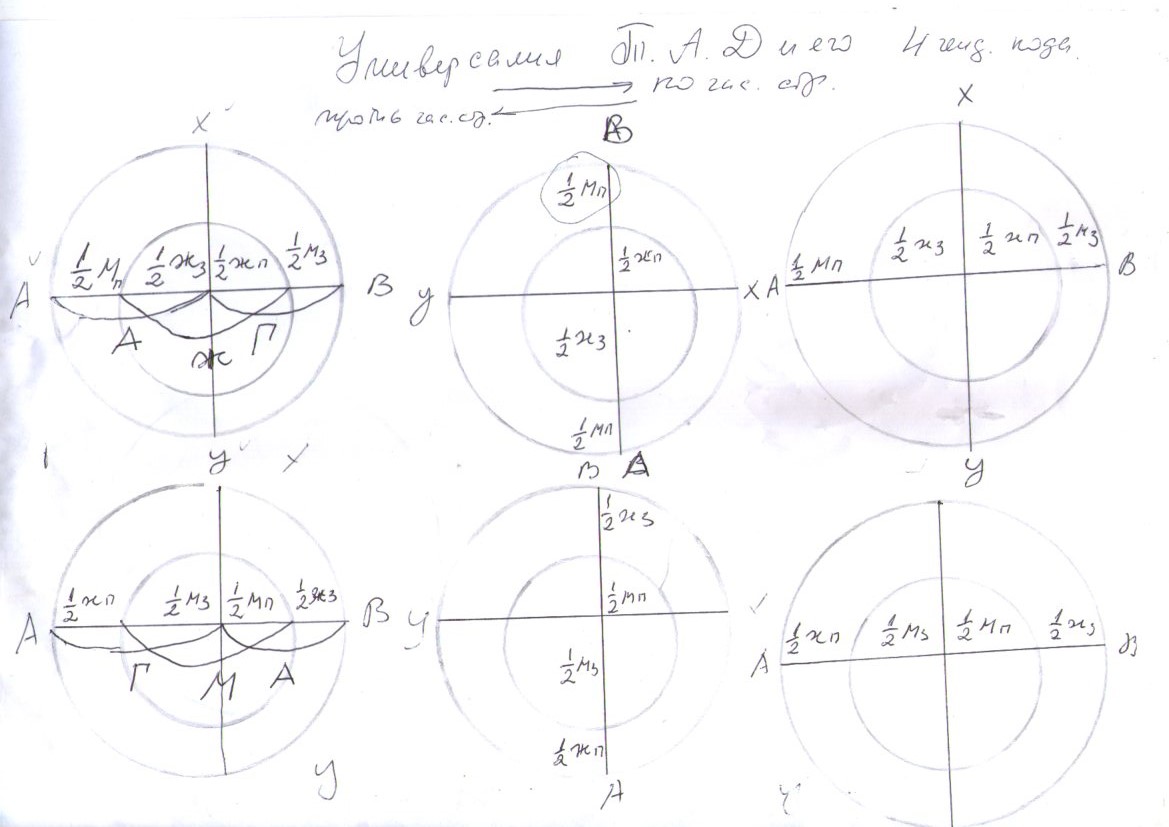 Универсалия П. А. Д и его 4 генд. кода.
по час. стр.
против час. ст.
X
A
1/2 Мп
1/2 жз
1/2 жп
1/2 мз
B
А
Ж
Г
у
B
1/2 Мп
1/2 жп
у
X
1/2 жз
1/2 Мп
A
X
A
1/2 Мп
1/2 жз
1/2 жп
1/2 мз
B
у
X
A
1/2 жп
1/2 мз
1/2 Мп
1/2 жз
B
Г
М
А
у
B
1/2 жз
1/2 Мп
у
1/2 мз
1/2 жп
A
A
1/2 жп
1/2 мз
1/2 Мп
1/2 жз
B
у